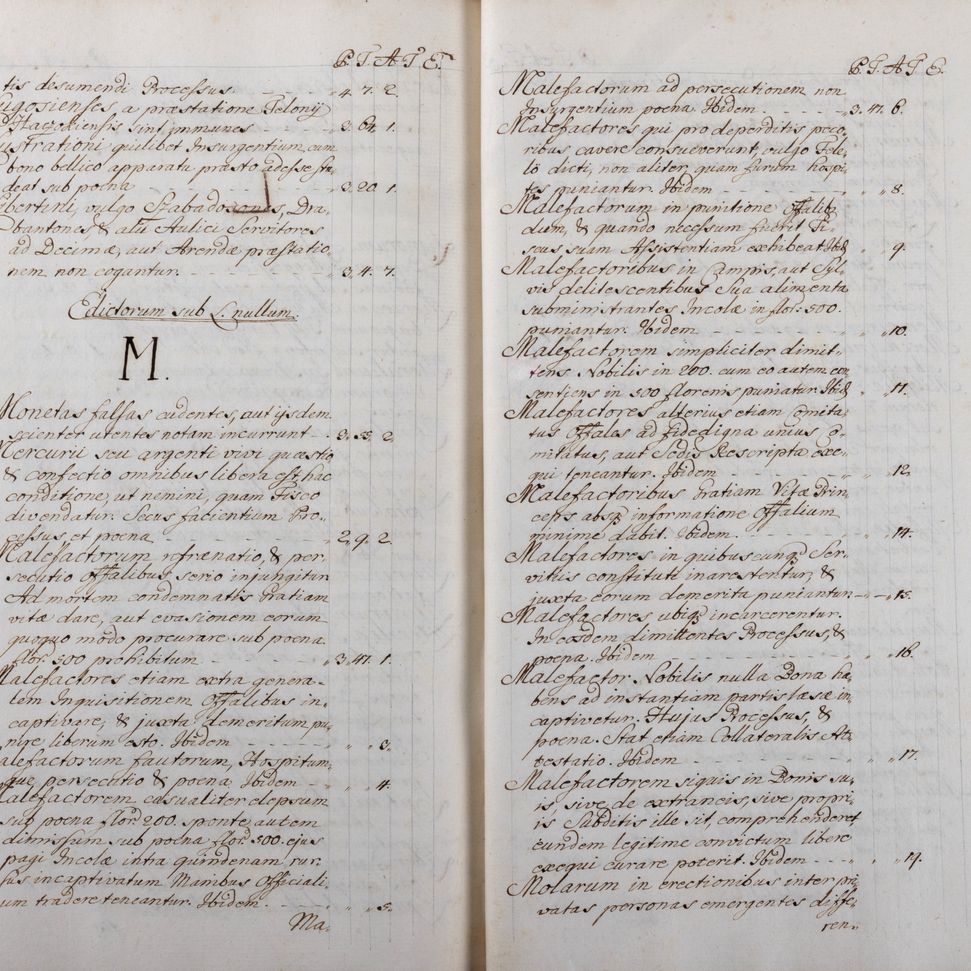 P. T. A T. E.
tis desumendi Processus - - - 4. 7. 2.
ugosienses, a præstatione Telonij
Hagodiensis sint immunes - - - 3. 64. 1.
ustrationi quilibet Insurgentium, cum
bono bellico apparatu præsto adesse stu,
deat sub poena - - - 3. 20. 1.
ibertini, vulgo Szabadosones, Dra,
bantones & alii Aulici Servitores
ad Decimæ, aut Arendæ præstatio,
nem non cogantur. - - - 3. 4. 7.
Edictorum sub L. nullum.
M.
Monetas falsas cudentes, aut ijsdem
scienter utentes notam incurrunt - 3. 55. 2.
Mercurii seu argenti vivi quæstio
& confectio omnibus libera est hac
conditione, ut nemini, quam Fisco
divendatur. Secus facientium Pro,
cessus, et poena - - - 2. 9. 2.
Malefactorum refrænatio, & per,
secutio Offalibus, serio injungitur
Ad mortem condemnatis Gratiam
vitæ dare, aut evasionem eorum
quoquo modo procurare sub poena
flor. 500 prohibitum - - - 3. 47. 1.
Malefactores etiam extra genera,
lem Inquisitionem Offalibus in,
captivare, & juxta demeritum pu,
nire liberum esto. Ibidem - - - „ „ 3.
alefactorum fautorum, Hospitum,
que persecutio & poena Ibidem - „ „ 4.
Malefactorem casualiter elepsum
sub poena flor. 200. sponte autem
dimissum sub poena flor. 500. ejus
pagi Incolæ intra quindenam rur,
sus incaptivatum Manibus Officiali,
um tradere teneantur. Ibidem. - - - „ „ 5.
Ma,
P. T. A T. E.
Malefactorum ad persecutionem non
Insurgentium poena. Ibidem - - - 3. 47. 6.
Malefactores qui pro deperditis peco,
ribus cavere consueverunt, vulgo Fele,
lö dicti, non aliter, quam furum hospi,
tes puniantur. Ibidem - - - „ „ 8.
Malefactorum in punitione Offalib
dum, & quando necessum fuerit Fi,
scus suam Assistentiam exhibeat. Ibid „ 9.
Malefactoribus in Campis, aut Syl,
vis delitescentibus Sua alimenta
subministrantes Incolæ in flor. 500.
puniantur. Ibidem - - - „ „ 10.
Malefactorem simpliciter dimit,
tens Nobilis in 200. cum eo autem con
sentiens in 500 florenis puniatur. Ibid „ 11.
Malefactores alterius etiam Comita,
tus Offales ad fidedigna unius Co,
mitatus, aut Sedis Rescripta exe,
qui teneantur. Ibidem - - - „ „ 12.
Malefactoribus Gratiam Vitæ Prin,
ceps absq informatione Offalium
minime dabit. Ibidem. - - - „ „ 14.
Malefactores in quibuscunq Ser,
vitiis constituti inarestentur, &
juxta eorum demerita puniantur - - 15.
Malefactores ubiq incarcerentur.
In eosdem dimittentes Processus, &
poena. Ibidem - - - „ „ 16.
Malefactor Nobilis nulla Bona ha,
bens ad instantiam partis læsæ in,
captivetur. Hujus Processus, &
poena. Stat etiam Collateralis At,
testatio. Ibidem - - - „ „ 17.
Malefactorem siquis in Bonis su,
is sive de extraneis, sive propri,
is Subditis ille sit, comprehenderet
eundem legitime convictum libere
exequi curare poterit. Ibidem - - - „ „ 19.
Molarum in erectionibus inter pri,
vatas personas emergentes diffe,
ren,